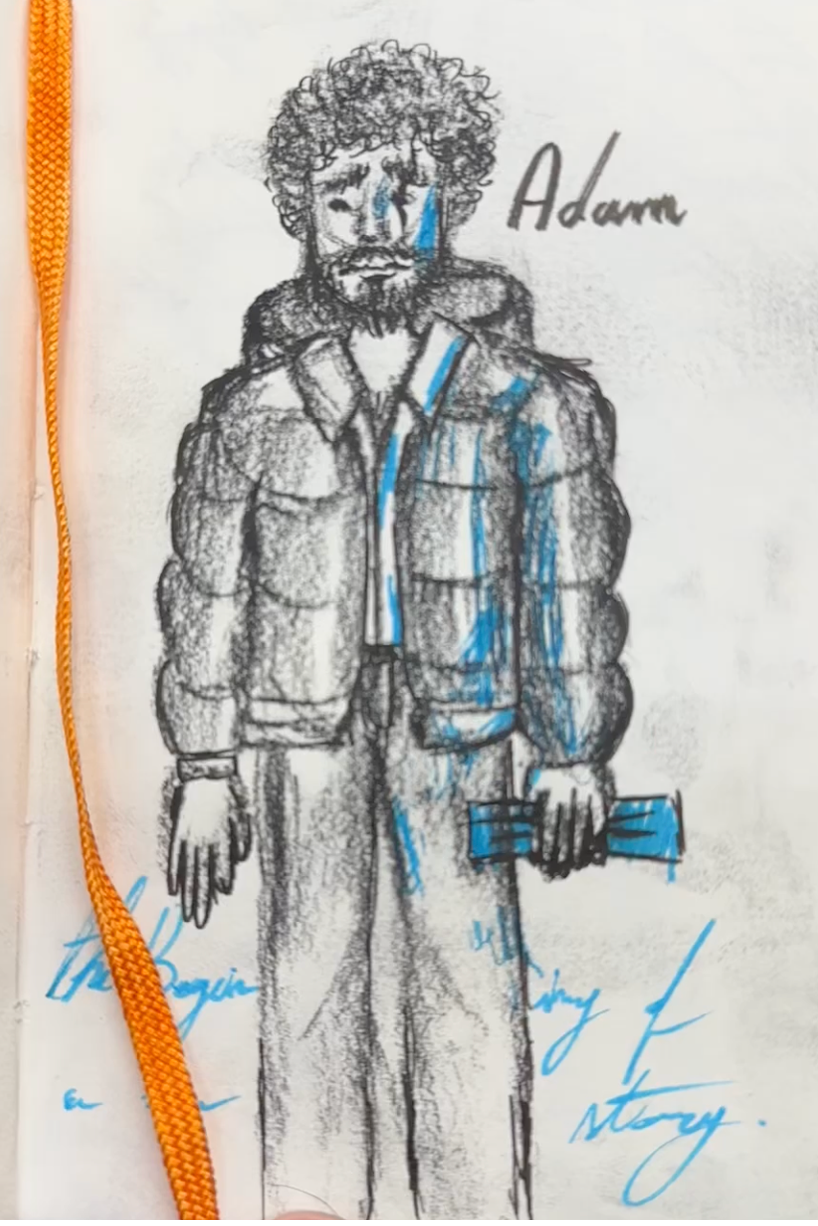 Adam
the Begin ing of
a story.